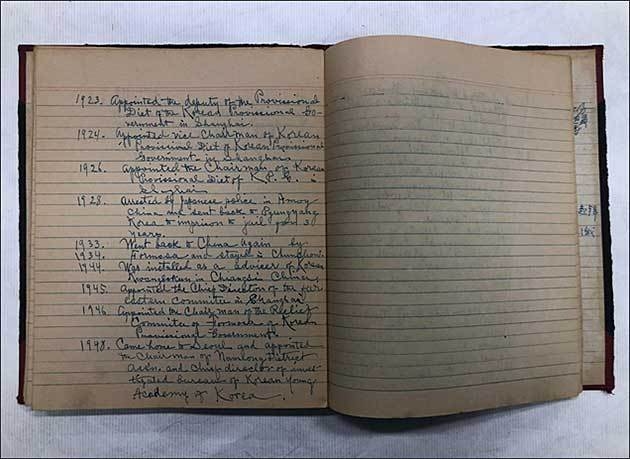 1923. Appointed the deputy of the Provissional
Diet of the Korean Provissional Go-
vernment in Shanghai.
1924. Appointed vice Chairman of Korean
Provissional Diet of Korean Provissional
Government in Shanghai.
1926. Appointed the Chairman of Korean
Provissional Diet of K. P. G. in
Shanghai
1928. Arrested by Japanese police in Amoy
China and sent back to Pyungyang
Korea to imprison to jail for 3
years.
1933. Went back to China again by
1934. Formosa and stayed in
1944. Was installed as a adviser of Korean
in China.
1945. Appointed the Chief Director of the far
eastern committee in Shanghai
1946. Appointed the Chairman of the Relief
Committe of Formosa of Korean
Provissional Government.
1948. Came home to Seoul and appointed
the Chairman of District
Assn. and Chief director of
bureau of Korean Young
Academy of Korea.